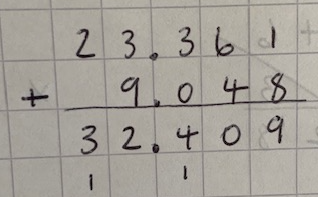 23.361
+ 9.048
32.409
1 1